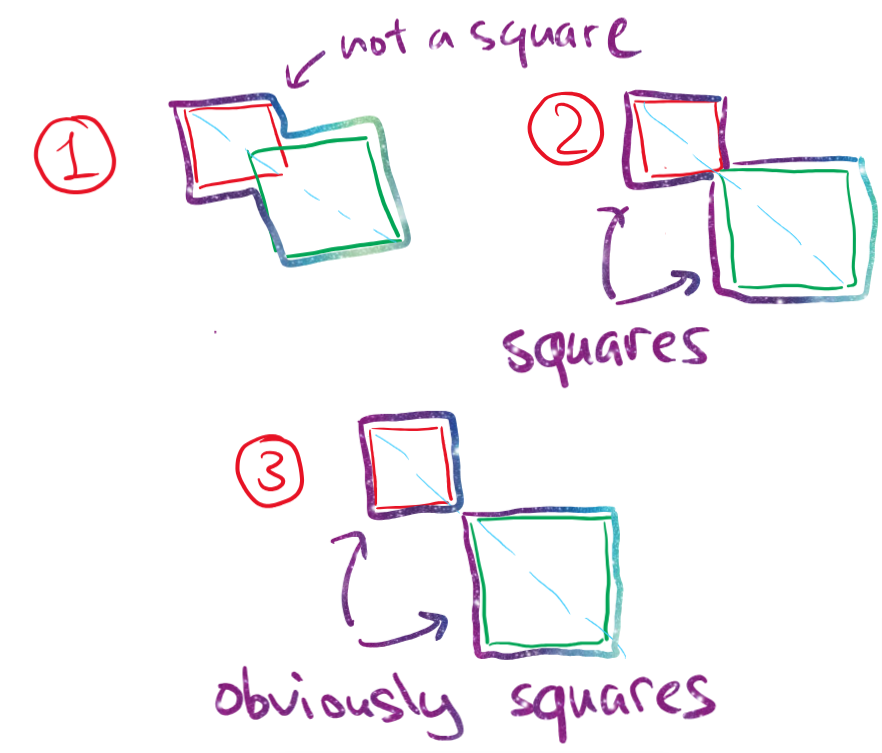 not a square
1
2
squares
3
obviously squares